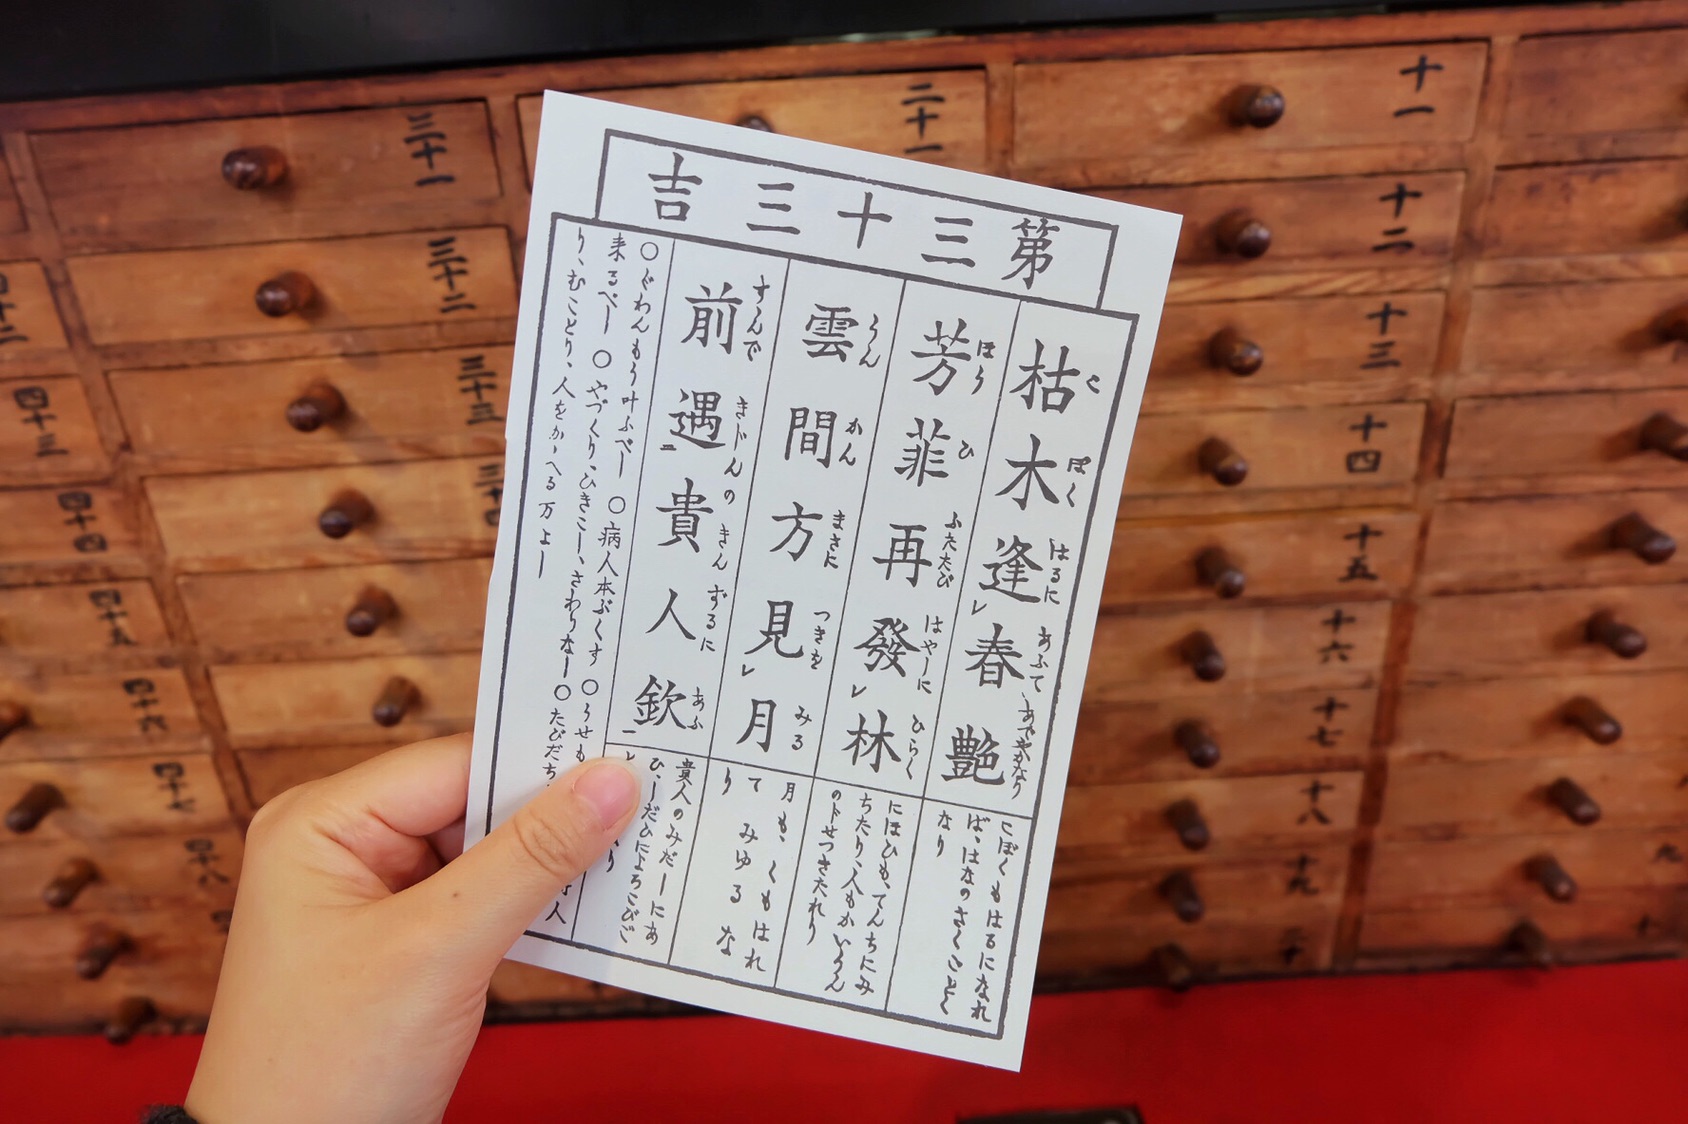 第三十三吉
枯木逢春艶
こぼくはるにあふてあでやかなり
芳菲再發林
ほうひふたたびはやしにひらく
雲間方見月
うんかんまさにつきをみる
前遇貴人欽
すすんできじんのきんずるにあふ
こぼくもはるになれ
ば、はなのさくごとく
なり
にほひも、てんちにみ
ちたり、人もか
月も、くもはれ
て みゆるな
り
貴人のみだしにあ
ひ、
○ぐわんもう叶ふべし ○病人本ぶくす ○うせも
来るべし ○やづくり、ひきこし、さわりなし ○たびだち
り、むこどり、人をかゝへる 万よし
十一
十二
十三
十四
十五
十六
十七
十八
十九
二十
二十一
三十一
三十二
三十三
四十二
四十三
四十四
四十五
四十六
四十七
四十八